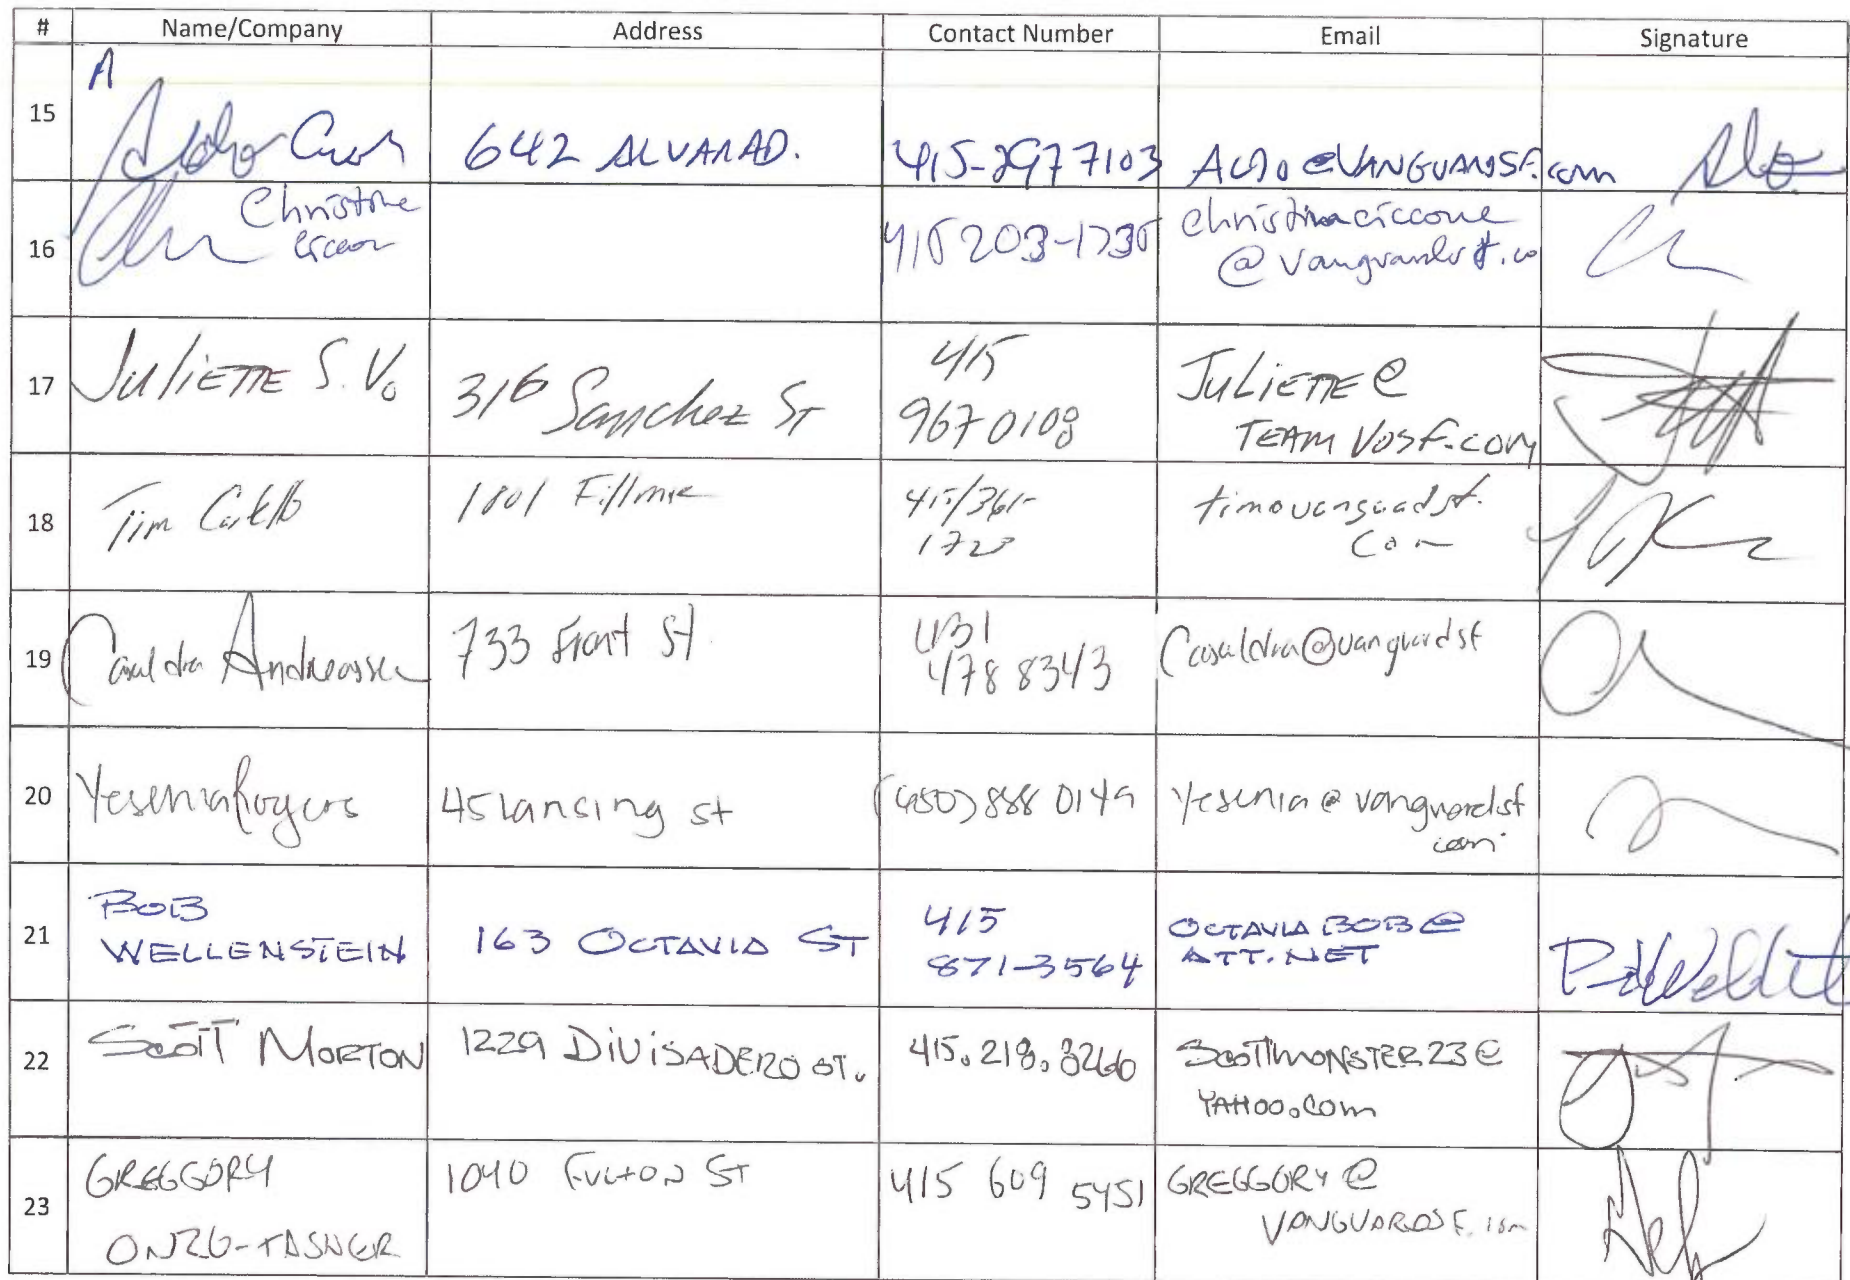 # Name/Company Address Contact Number Email Signature
A
15 Aldo 642 ALVARAD. 415-2977103 ALDO@VANGUARDSF.com
16 Christine 415 203-1735 christinaciccone
@vanguardsf.co
17 JULIETTE S. Vo 316 Sanchez ST 415
967 0108 JULIETTE@
TEAMVOSF.COM
18 Tim 1801 Fillmore 415/361-
com
19 733 Front St. 831
478 8343
20 Yesenia Rogers 45 lansing st (650) 888 0149 yesenia@vanguardsf
com
21 BOB
WELLENSTEIN 163 OCTAVIA ST 415
871-3564 OCTAVIABOB@
ATT.NET
22 SCOTT MORTON 1229 DIVISADERO ST. 415.218.8260 SCOTTMONSTER23@
YAHOO.COM
23 GREGGORY 1040 FULTON ST 415 609 5451 GREGGORY@
VANGUARDSF.com